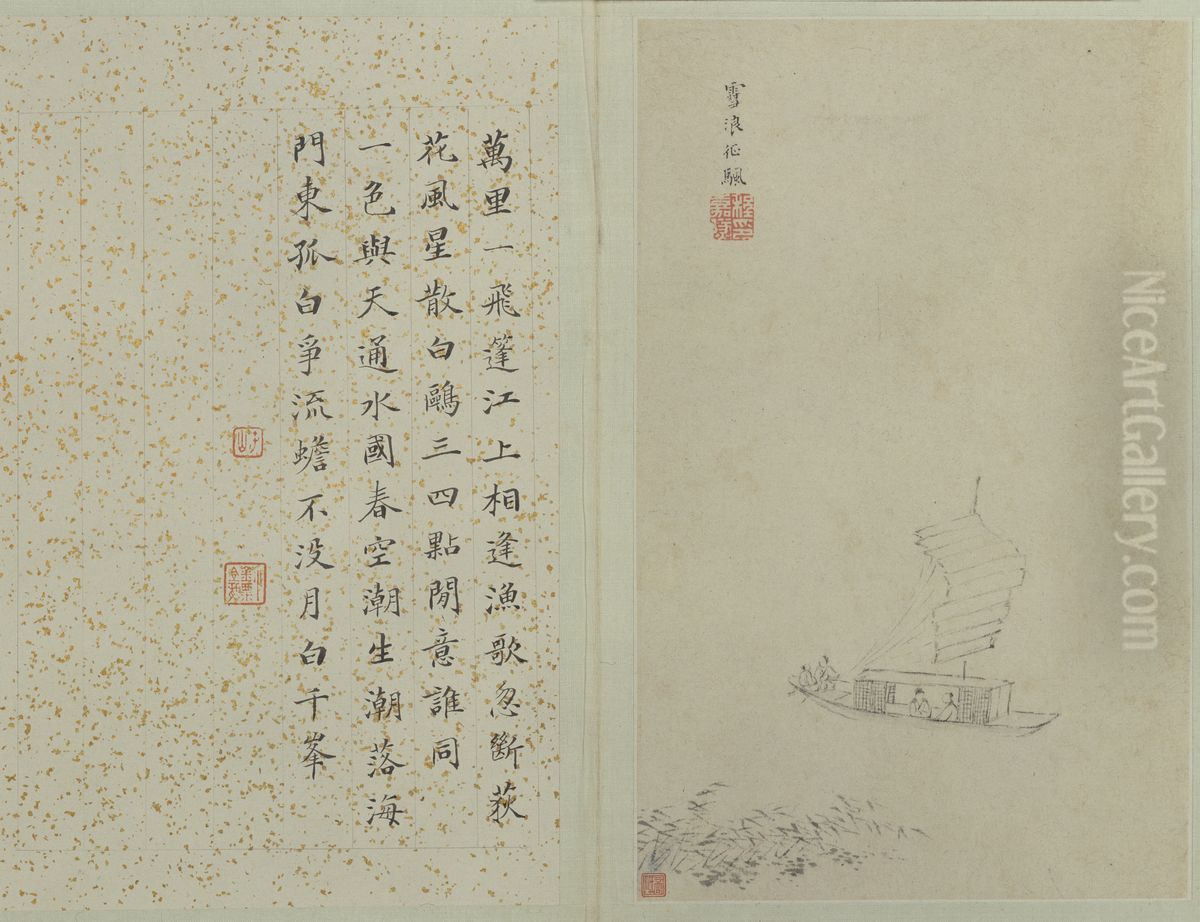 雪浪征颿
萬里一飛篷江上相逢漁歌忽斷荻
花風星散白鷗三四點閒意誰同
一色與天通水國春空潮生潮落海
門東孤白爭流蟾不没月白千峯
NiceArtGallery.com